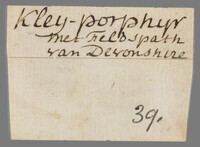 Kley-porphyr
met Feldspath
van Devonshire
39.